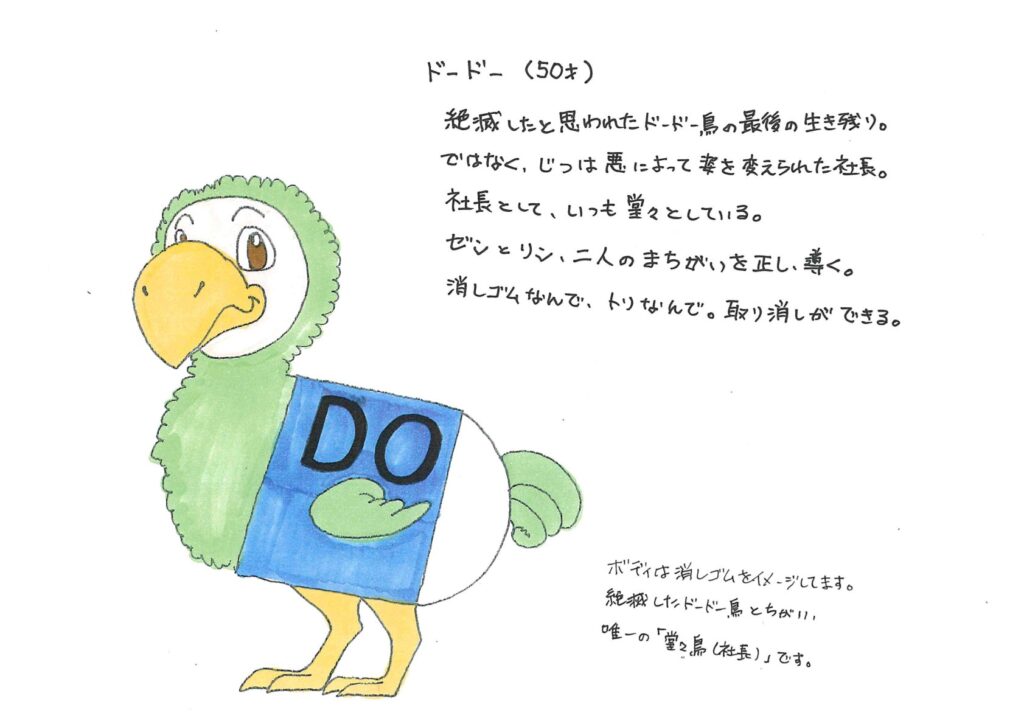 ドードー（50才）
絶滅したと思われたドードー鳥の最後の生き残り。
ではなく、じつは悪によって姿を変えられた社長。
社長として、いつも堂々としている。
ゼンとリン、二人のまちがいを正し、導く。
消しゴムなんで、トリなんで。取り消しができる。
DO
ボディは消しゴムをイメージしてます。
絶滅したドードー鳥とちがい、
唯一の「堂々鳥（社長）」です。